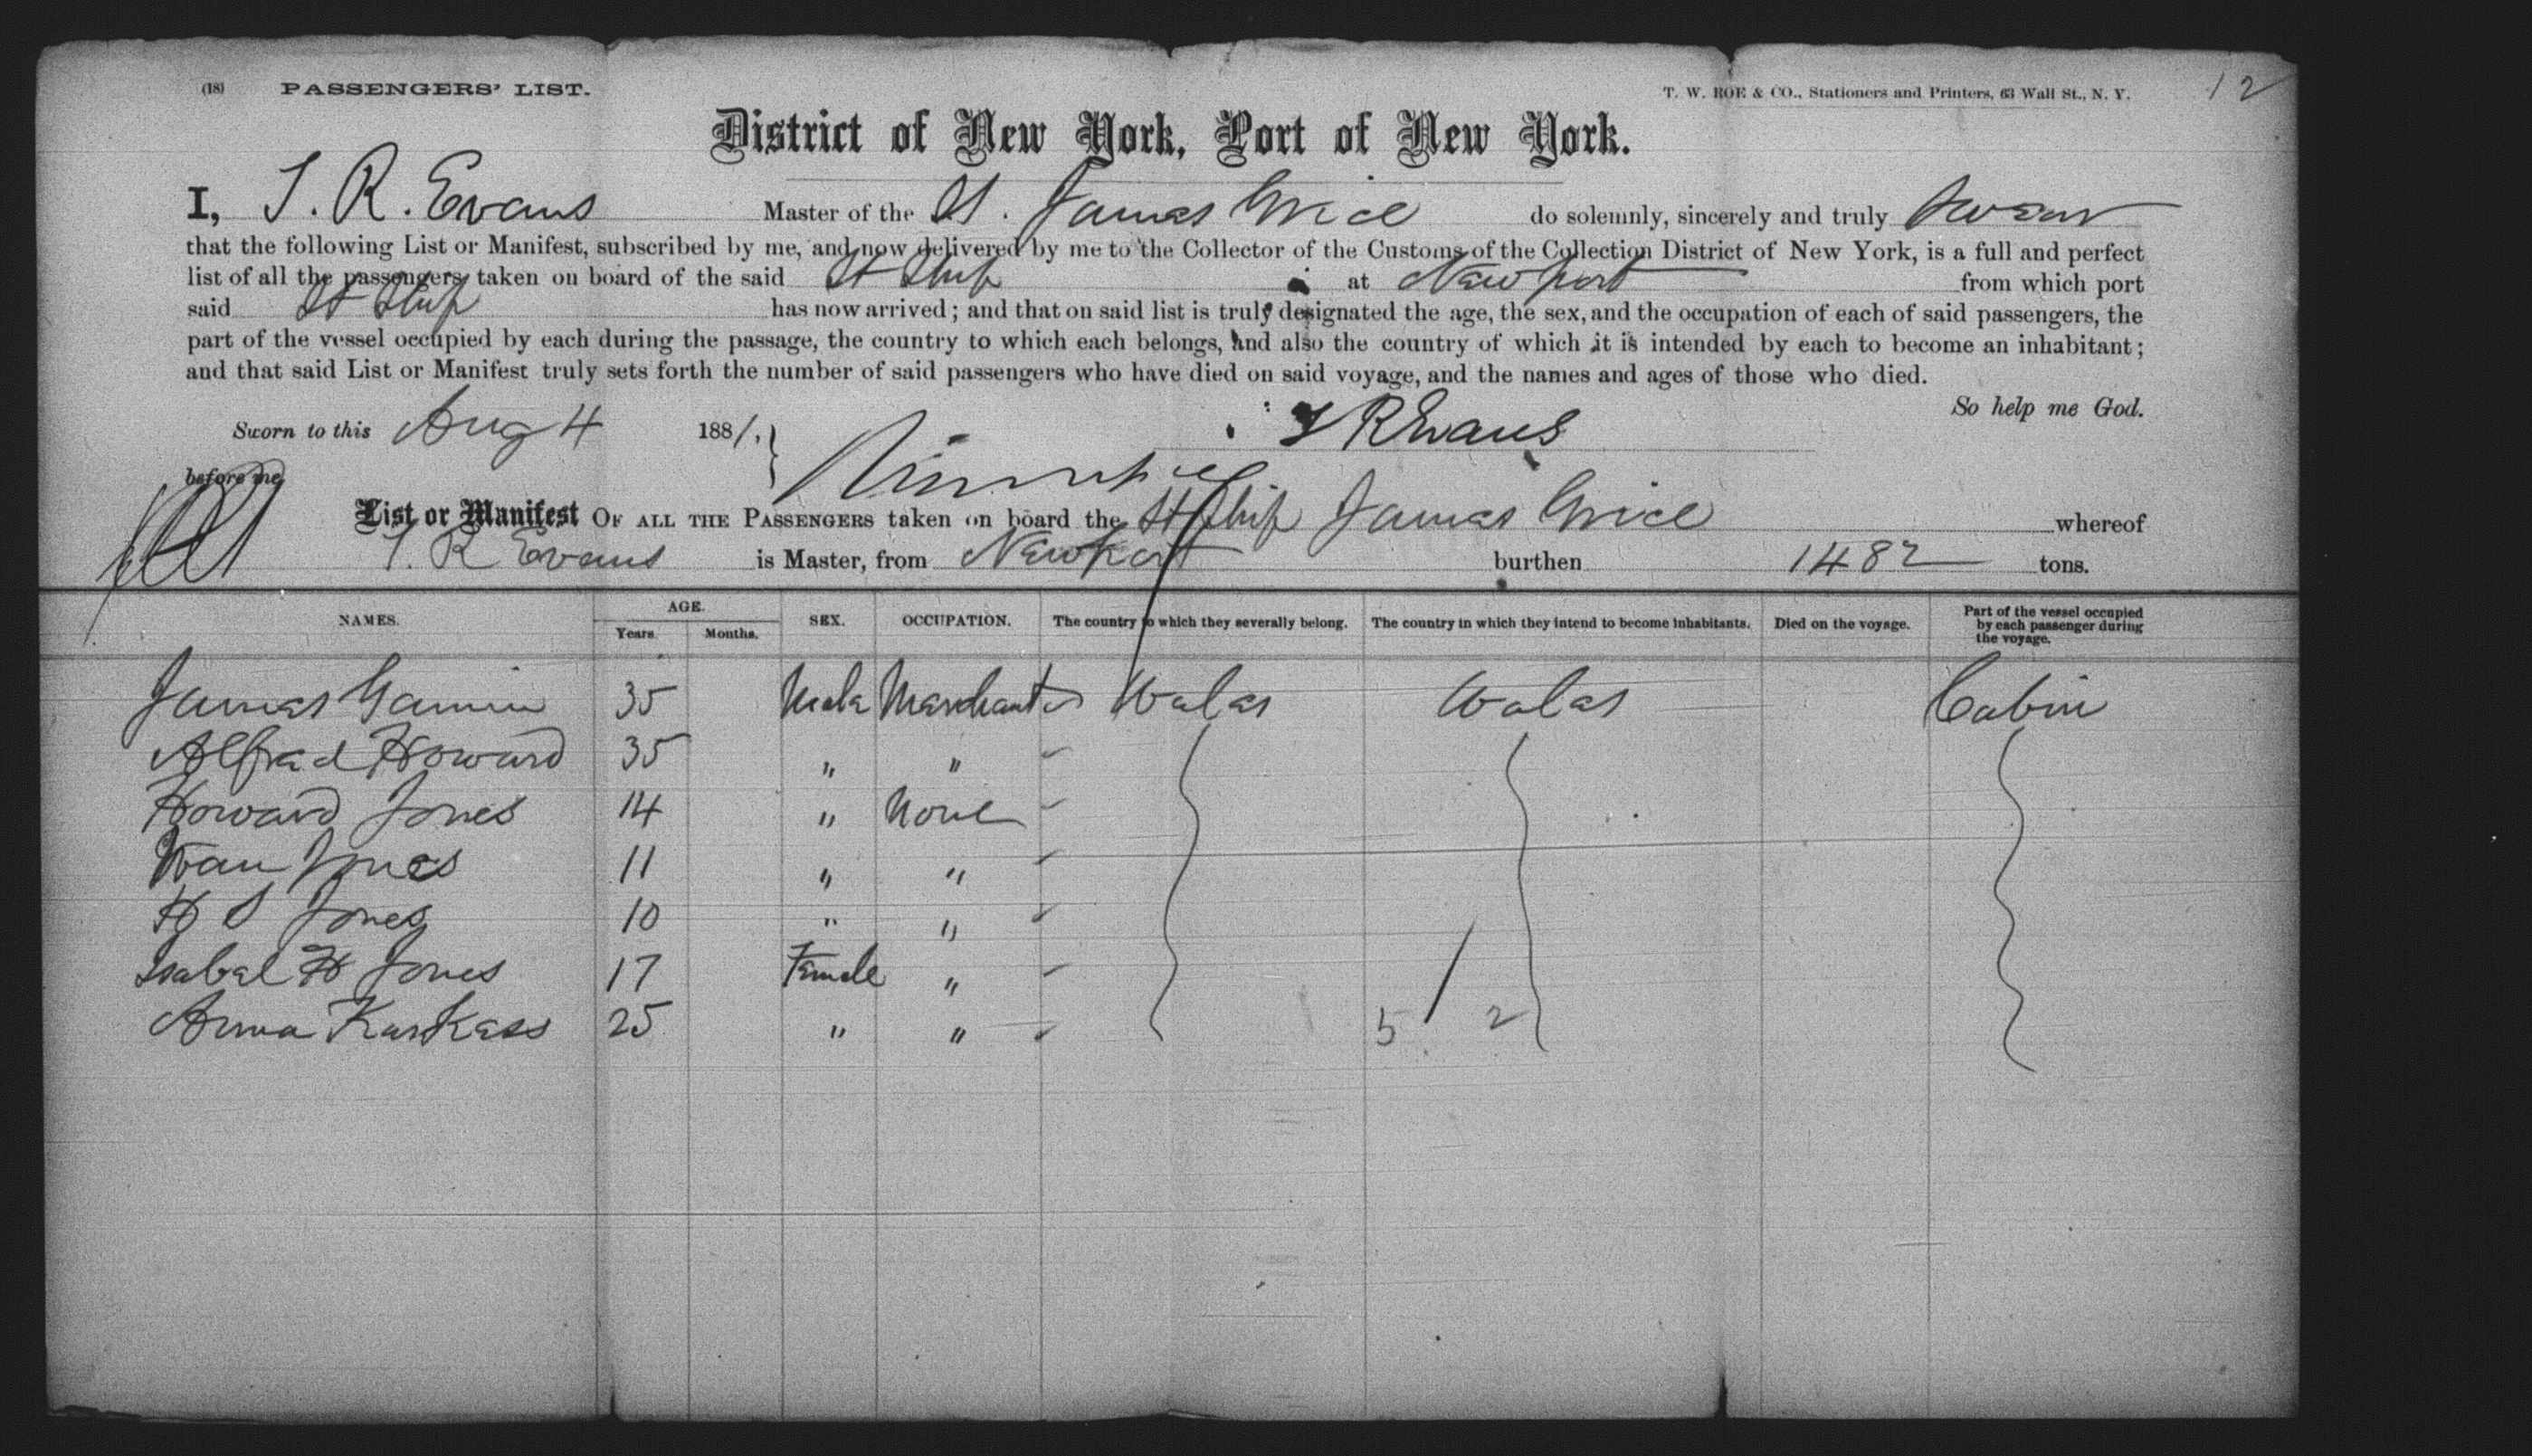 (18) PASSENGERS' LIST. T. W. ROE & CO., Stationers and Printers, 63 Wall St., N. Y. 12
District of New York, Port of New York.
I, T. R. Evans Master of the St. James Grice do solemnly, sincerely and truly Swear
that the following List or Manifest, subscribed by me, and now delivered by me to the Collector of the Customs of the Collection District of New York, is a full and perfect
list of all the passengers taken on board of the said St Ship at Newport from which port
said St Ship has now arrived; and that on said list is truly designated the age, the sex, and the occupation of each of said passengers, the
part of the vessel occupied by each during the passage, the country to which each belongs, and also the country of which it is intended by each to become an inhabitant;
and that said List or Manifest truly sets forth the number of said passengers who have died on said voyage, and the names and ages of those who died.
So help me God.
Sworn to this Aug 4 1881, T R Evans
before me
List or Manifest OF ALL THE PASSENGERS taken on board the St Ship James Grice whereof
T. R Evans is Master, from Newport burthen 1482 tons.
NAMES. AGE. Years. Months. SEX. OCCUPATION. The country to which they severally belong. The country in which they intend to become inhabitants. Died on the voyage. Part of the vessel occupied by each passenger during the voyage.
James 35 Male Merchant Wales Wales Cabin
Alfred Howard 35 " "
Howard Jones 14 " None
Jones 11 " "
H S Jones 10 " "
Isabel H Jones 17 Female "
Anna 25 " " 5 / 2